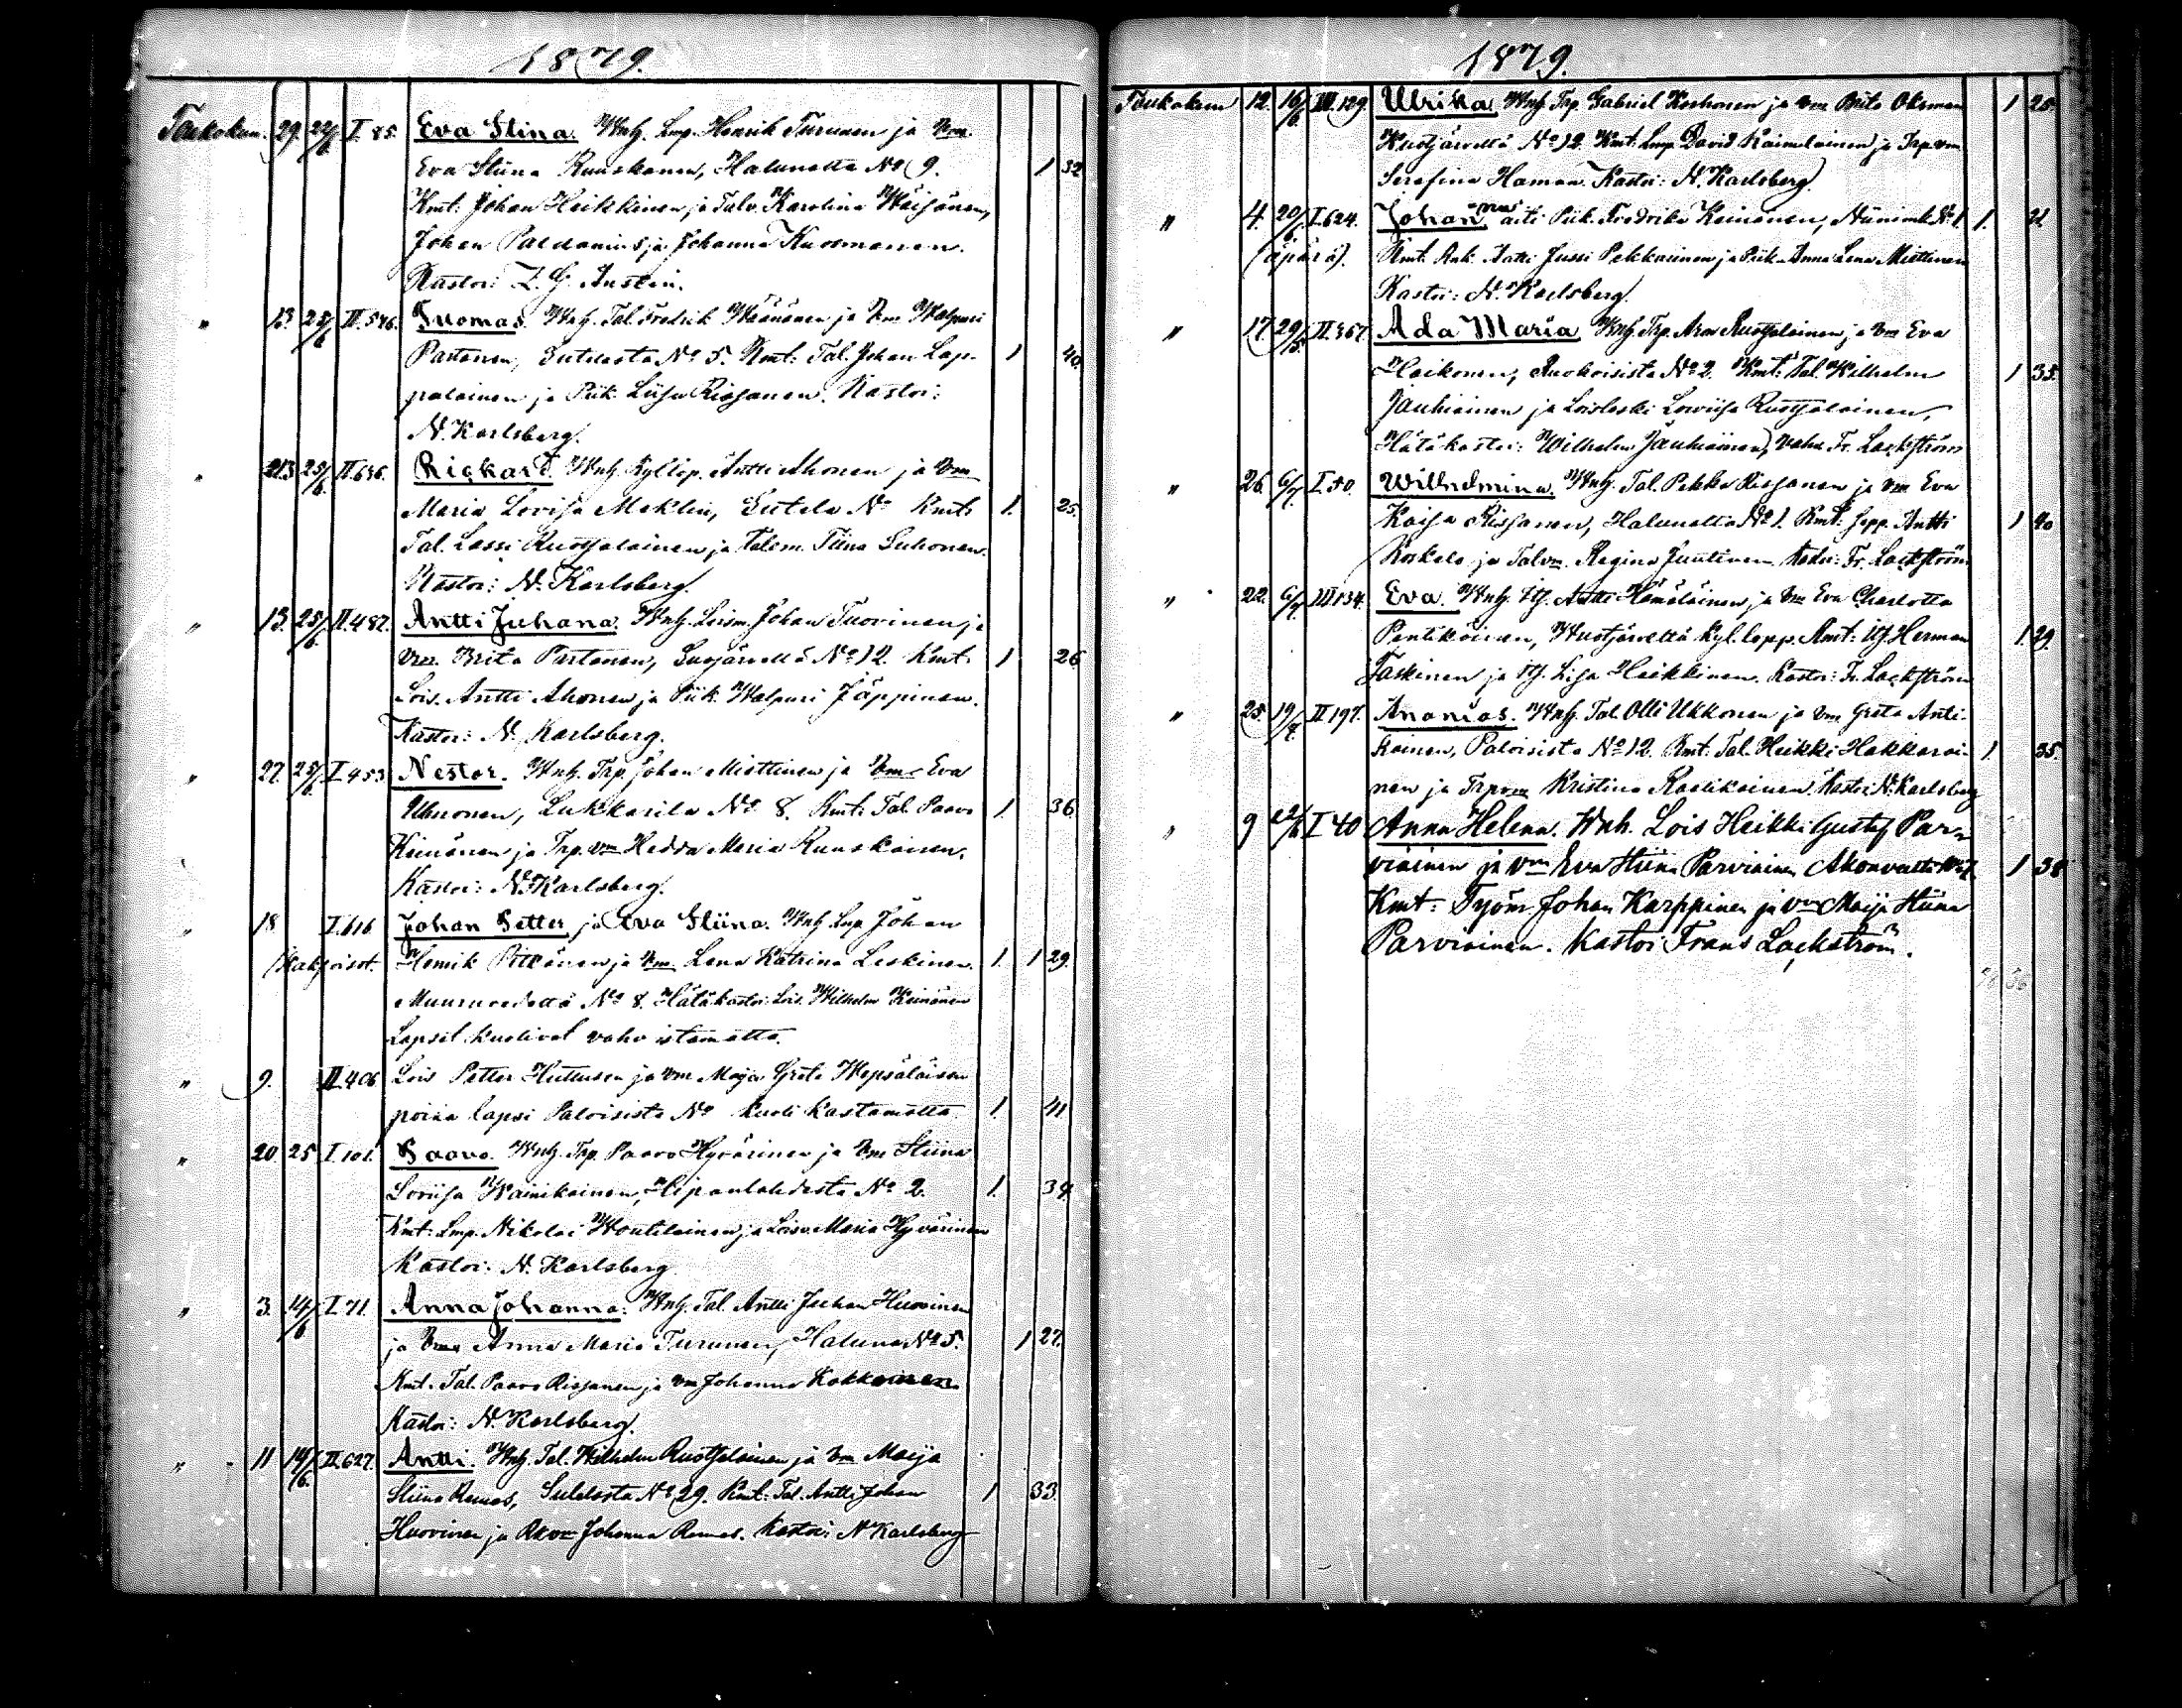 1879.
Toukokuu. 29. 22/6. I. 85. Eva Stina. Wnh. Lmp. Henrik Turunen ja Vm.
Eva Stiina Ruuskanen, Halunalta No 9. 1 32
Kmt: Johan Heikkinen ja Talv. Karolina Wäisänen,
Johan Paldanius ja Johanna Kuosmanen.
Kastoi: Z. G. Austen.
" 13. 25/6 II. 546. Tuomas. Wnh. Tal. Fredrik Wäänänen ja Vm Walpuri
Partanen, Sutelasta No 5. Kmt: Tal. Johan Lap- 1 40.
palainen ja Piik. Liisa Rissanen. Kastoi:
N. Karlsberg.
" 23 25/6. II. 636. Rickard. Wnh. Kyllep. Antti Ahonen ja Vm
Maria Lovisa Meklin, Sutela No Kmt: 1. 25.
Tal. Lassi Ruotsalainen ja Talem. Tiina Suhonen.
Kastoi: N. Karlsberg.
" 13. 25/6. II. 487. Antti Juhana. Wnh. Loism. Johan Tuovinen ja
Vm. Brita Partanen, Suojärveltä No 12. Kmt: 1 26
Lois. Antti Ahonen ja Piik. Walpuri Jäppinen.
Kastoi: N. Karlsberg.
" 27. 25/6. I. 453. Nestor. Wnh. Trp. Johan Miettinen ja Vm Eva
Uhmonen, Lukkarila No 8. Kmt: Tal. Paavo 1. 36.
Keinänen ja Trp. vm Hedda Maria Ruuskainen.
Kastoi: N. Karlsberg.
" 18. I. 616 Johan Petter ja Eva Stiina. Wnh. Lmp Johan
(kaksoiset. Henrik Pitkänen ja Vm. Lena Katrina Leskinen. 1. 1 29.
Muuruvedeltä No 8. Hätäkastoi: Lois. Wilhelm Keinänen
Lapset kuolivat vahvistamatta.
" 9. II. 406 Lois Petter Huttusen ja Vm Maija Greta Wepsäläisen
poika lapsi Paloisista No Kuoli kastamatta 1. 41
" 20. 25 I. 101. Paavo. Wnh. Trp. Paavo Hyvärinen ja Vm Stiina
Loviisa Wainikainen, Hipanlahdesta No 2. 1. 34.
Kmt: Lmp. Nikolai Woutilainen ja Loisv. Maria Hyvärinen
Kastoi: N. Karlsberg
" 3. 14/6 I. 71. Anna Johanna: Wnh. Tal. Antti Juhan Huovinen
ja Vm Anna Maria Turunen, Haluna No 5. 1 27.
Kmt: Tal. Paavo Rissanen ja Vm Johanna Kokkoinen.
Kastoi: N. Karlsberg.
" 11 14/6. II. 627. Antti. Wnh. Tal. Wilhelm Ruotsalainen ja Vm Maija
Stiina Remes, No 29. Kmt: Tal. Antti Johan 1 33.
Huovinen ja Johanna Remes. Kastoi: N Karlsberg
1879.
Toukokuu 12. 16/6. III. 129. Ulrika. Wnh. Trp. Gabriel Korhonen ja Vm Brita Oksman 1 25.
Wuotjärveltä No 12. Kmt: Lmp. David Raimolainen ja Trp. vm
Serafina Haman. Kastoi: N. Karlsberg.
" 4. 20/6 I. 624. Johan, äiti Piik. Fredrika Keinänen, Niinimk. No 1 1. 21.
(äpärä). Kmt: Rnk. Antti Jussi Pekkarinen ja Piik. Anna Lena Miettinen
Kastoi: N. Karlsberg.
" 17. 29/5. II. 367. Ada Maria Wnh. Trp. Aron Ruotsalainen, ja Vm Eva
Haikonen, Ruokoisista No 2. Kmt: Tal. Wilhelm 1 35.
Jauhiainen ja Loisleski Loviisa Ruotsalainen,
Hätäkastoi: Wilhelm Jauhiainen, vahv. Fr. Lackström
" 26. 6/7. I. 50. Willhelmina. Wnh. Tal. Pekka Rissanen ja Vm Eva
Kaisa Rissanen, Halunalta No 1. Kmt: Sepp. Antti 1 40
Koskelo ja Talvm. Regina Juutinen. Kastoi: Fr. Lackström
" 22. 6/7 III 134. Eva. Wnh. Itj. Antti Hämäläinen, ja Vm Eva Charlotta
Pentikäinen, Wuotjärveltä Kyl. lopp. Kmt: Itj. Herman 1. 29.
Taskinen ja Itj. Lisa Heikkinen. Kastoi: Fr. Lackström
" 25. 19/7. II 197. Ananias. Wnh. Tal. Olli Ukkonen ja Vm Greta Anti-
kainen, Paloisista No 12. Kmt: Tal. Heikki Hakkarai- 1. 35.
nen ja Trpvm Kristina Raatikainen. Kastoi: N. Karlsberg
" 9 22/6 I 40 Anna Helena. Wnh. Lois Heikki Gustaf Par-
viainen ja Vm Eva Stiina Parviainen Akonvedeltä 1 38
Kmt: Työm Johan Karppinen ja Vm Maija Stiina
Parviainen. Kastoi Frans Lackström.